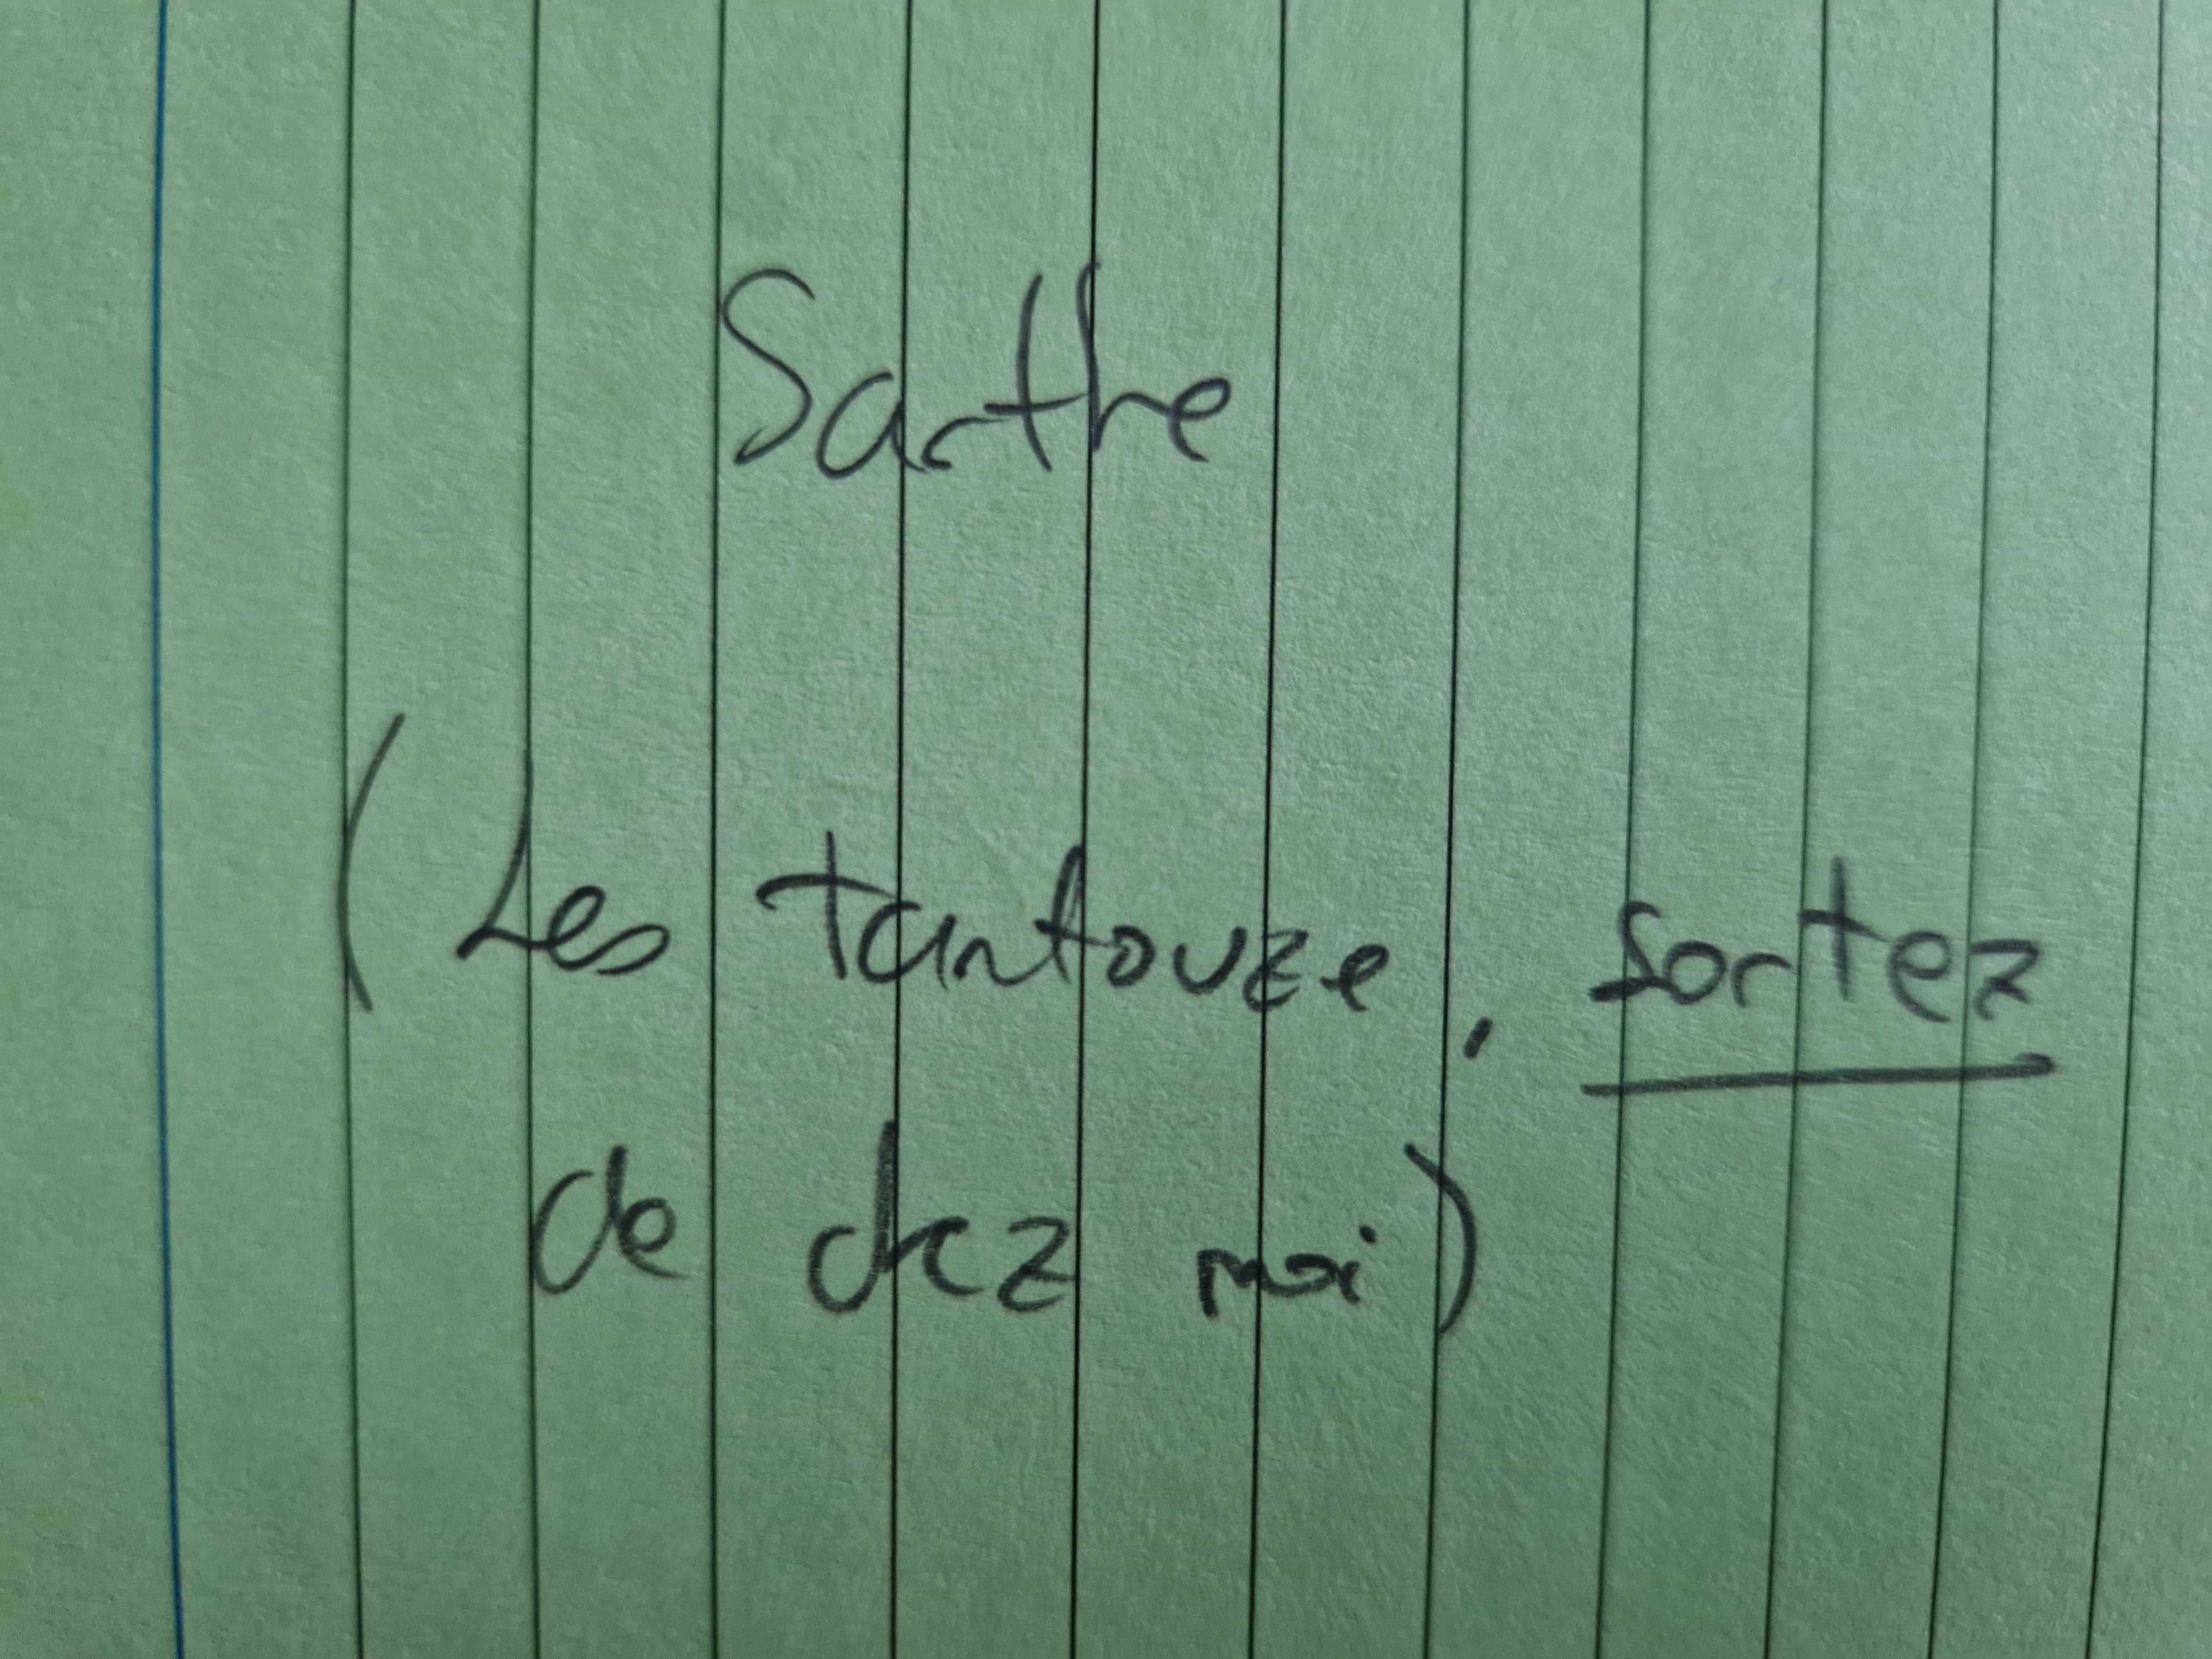 Sarthe
(Les tantouze, sortez
de chez moi)